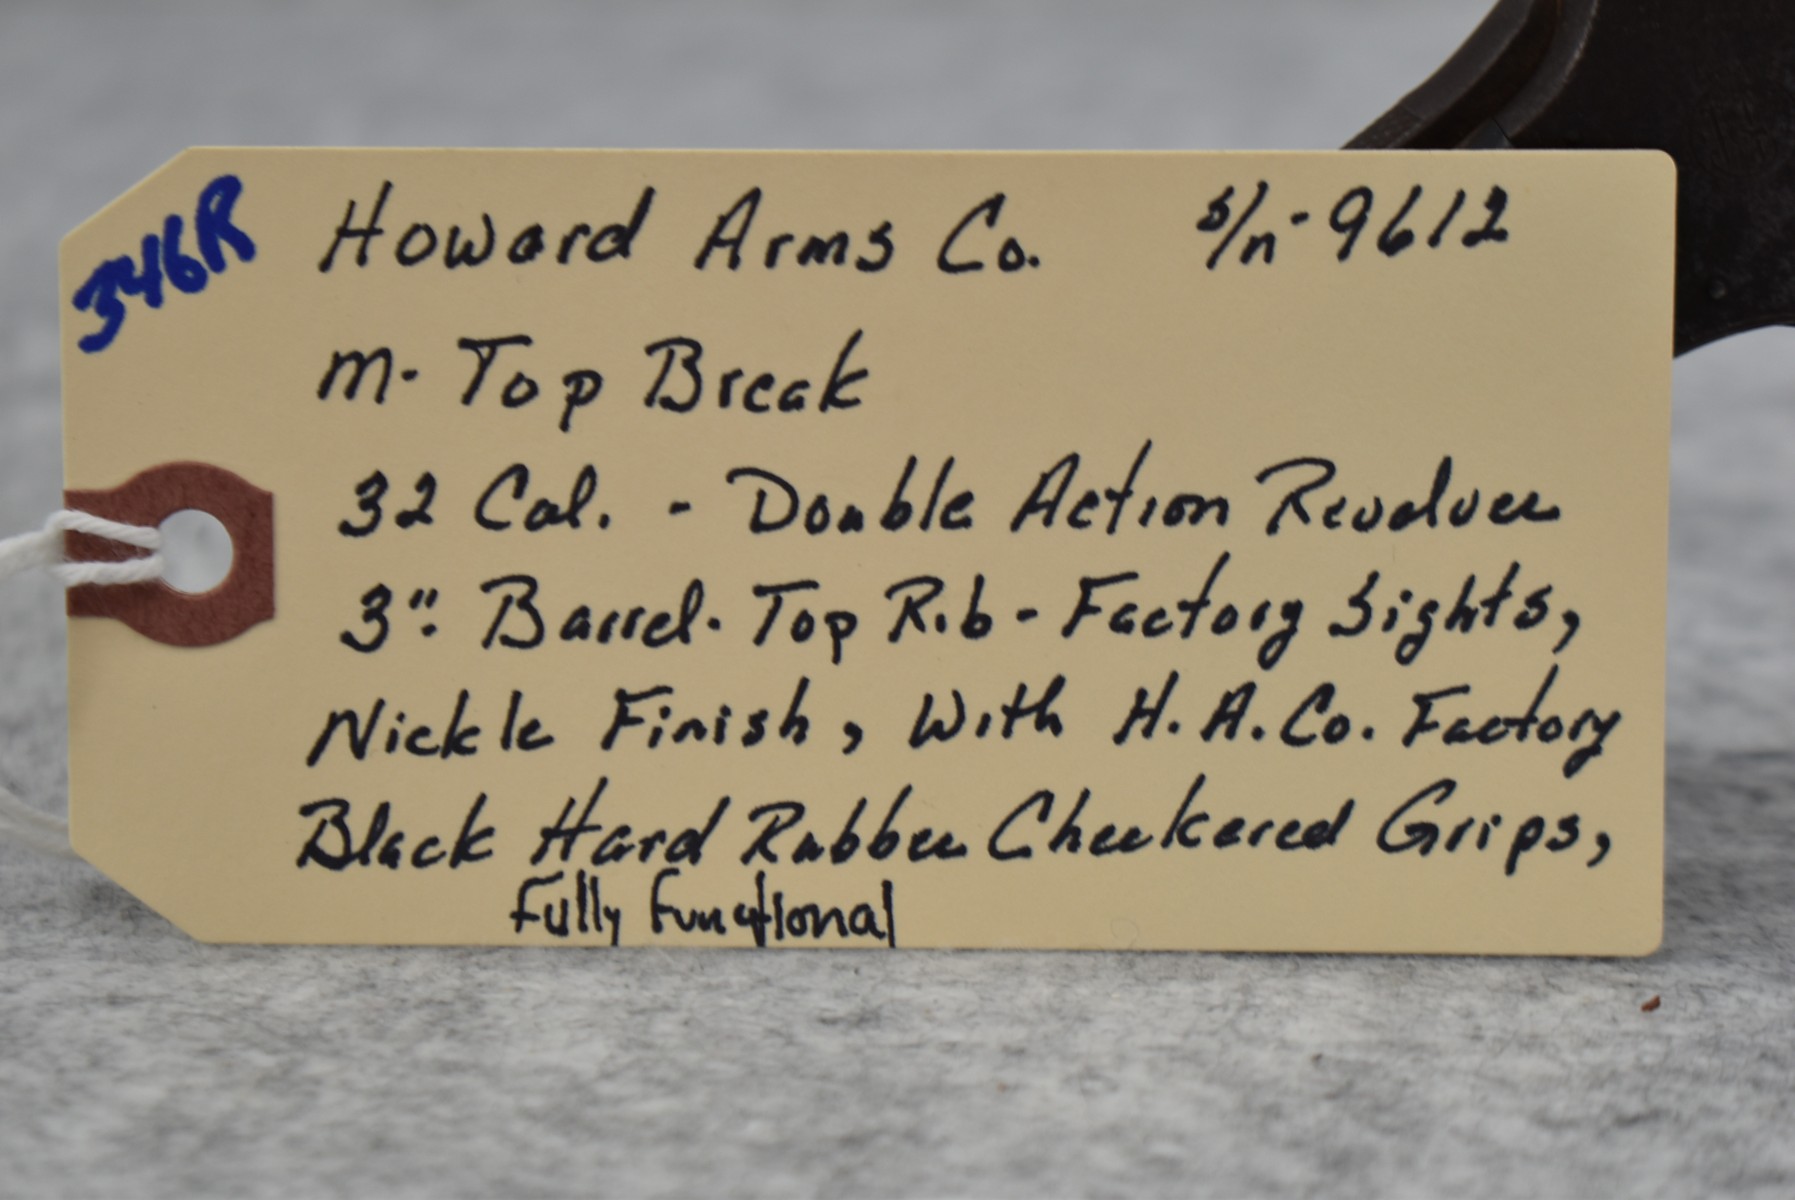 346R
Howard Arms Co. s/n-9612
M- Top Break
32 Cal. - Double Action Revolver
3". Barrel. Top Rib - Factory Sights,
Nickle Finish, With H.A.Co. Factory
Black Hard Rubber Checkered Grips,
Fully Functional